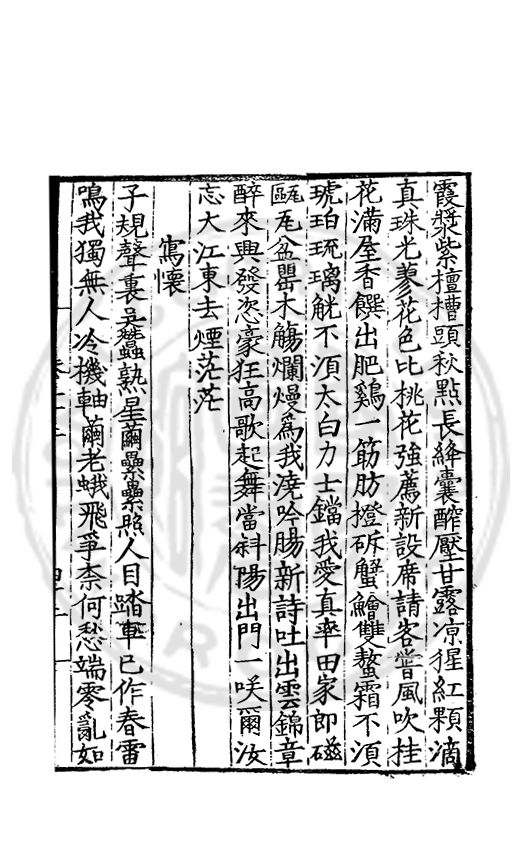 霞漿紫檀槽頭秋點長絳囊醡壓甘露凉猩紅顆滴
真珠光蓼花色比桃花強薦新設席請客嘗風吹桂
花滿屋香饌出肥鷄一筯肪橙斫蟹鱠雙螯霜不湏
琥珀琉璃觥不湏太白力士鐺我愛真率田家即磁
甌瓦盆罌木觴爛熳爲我澆吟腸新詩吐出雲錦章
醉來興發恣豪狂高歌起舞當斜陽出門一咲爾汝
忘大江東去煙茫茫
寓懷
子規聲裏吳蠶熟星繭纍纍照人目踏車已作春雷
鳴我獨無人冷機軸繭老蛾飛爭柰何愁端零亂如